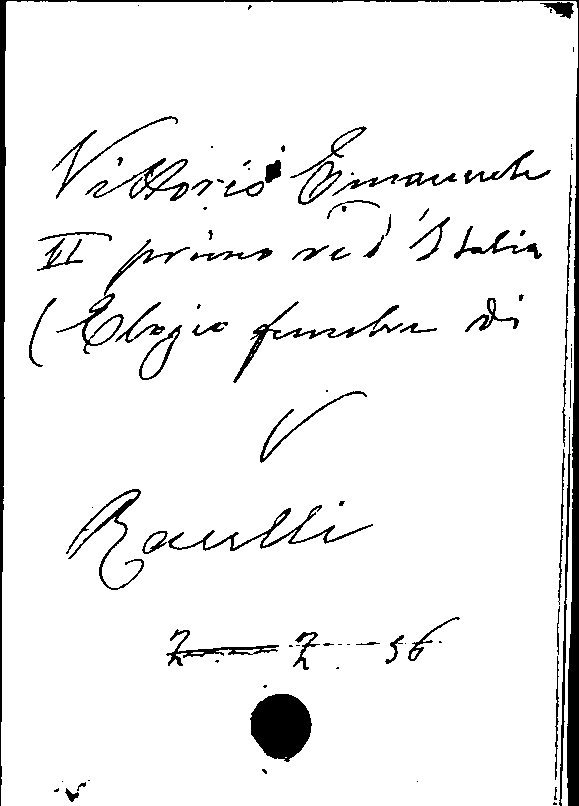 Vittorio Emanuele
II primo re d'Italia
(Elogio funebre di
V
Racelli
Z — Z. 56